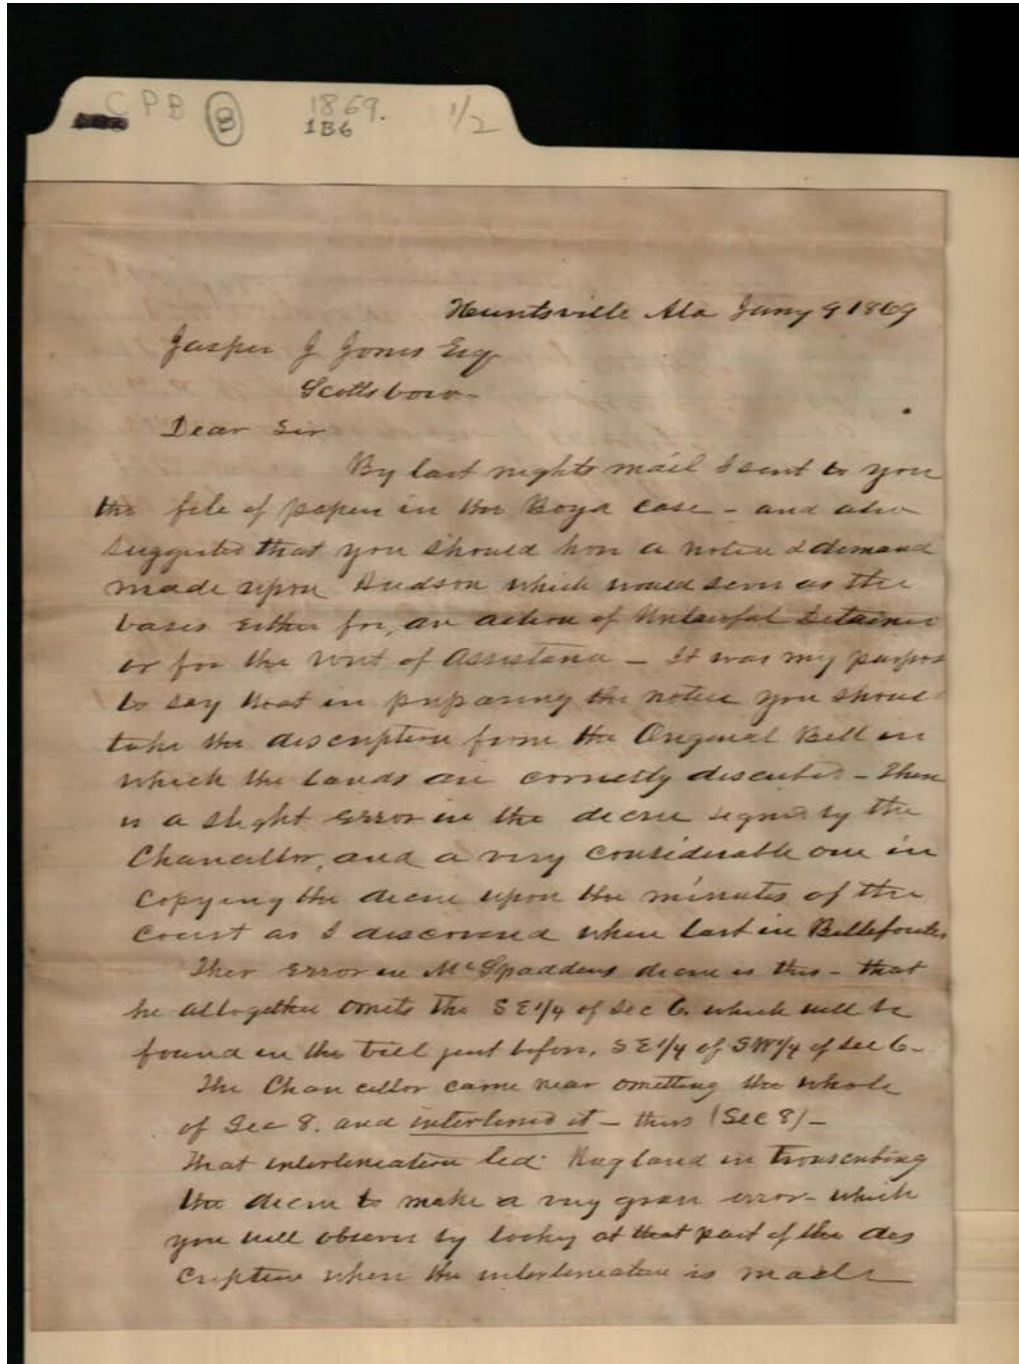 CPB B 1869. 1/2
1B6
Huntsville Ala Jany 9 1869
Jasper J Jones Esq
Scottsboro-
Dear Sir
By last nights mail I sent to you
the file of papers in the Boyd case - and also
suggested that you should have a notice & demand
made upon Hudson which would serve as the
bases either for, an action of Unlawful Detainer
or for the writ of Assistance - It was my purpose
to say that in preparing the notice you should
take the description from the Original Bill in
which the lands are correctly described - There
is a slight error in the decree signed by the
Chancellor, and a very considerable one in
copying the decree upon the minutes of the
Court as I discovered when last in Bellefonte,
Ther error in McSpaddens decree is this - that
he altogether omits the S E 1/4 of Sec 6. which will be
found in the bill just before, S E 1/4 of S W 1/4 of Sec 6-
The Chancellor came near omitting the whole
of Sec 8. and interlined it - thus (Sec 8) -
That interlineation led Ragland in transcribing
the decree to make a very gross error - which
you will observe by looking at that part of the des
cription where the interlineation is made